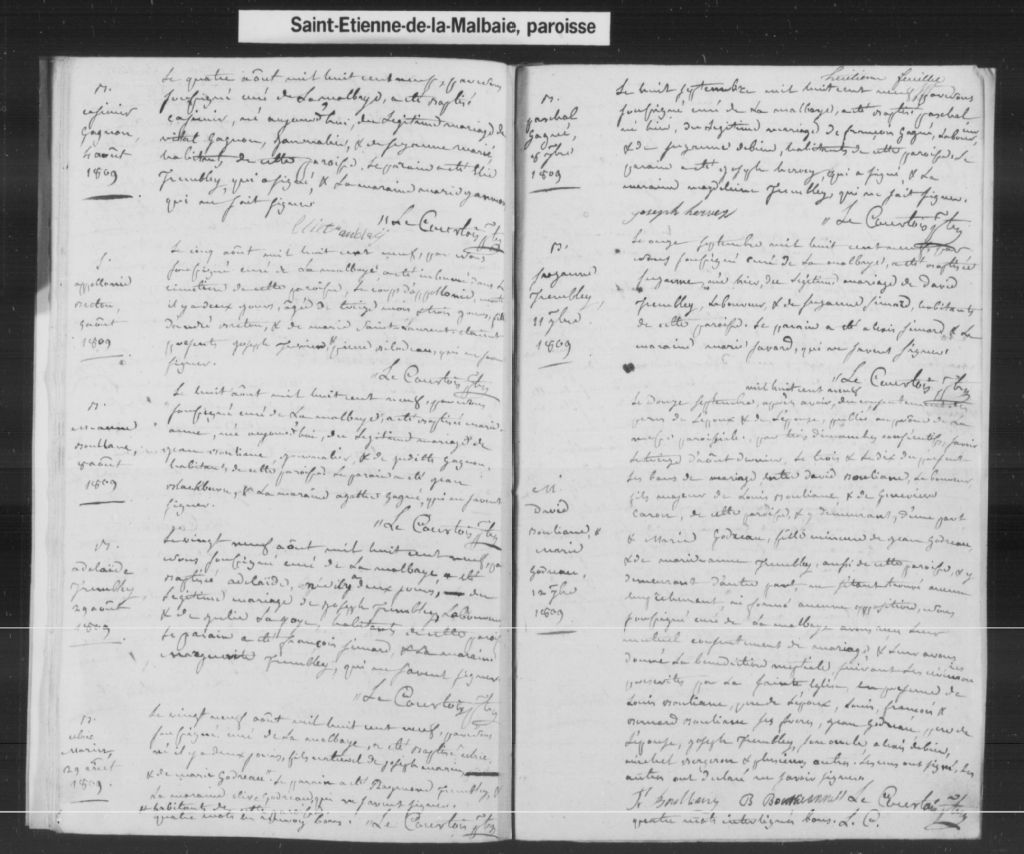 Saint-Etienne-de-la-Malbaie, paroisse
B.
casimir
Gagnon,
4 août
1809
Le quatre août mil huit cent neuf, par nous
soussigné curé de La malbaye, a été baptisé
casimir, né aujourd'hui, du Légitime mariage de
vital Gagnon, journalier, & de suzanne marié
habitants de cette paroisse. Le parain a été Elie
Tremblay, qui a signé, & La maraine marie gagnon
qui ne sait signer.
Elie tremblay
"Le Courtois ptre
S.
appollonie
août
1809
Le cinq août mil huit cent neuf, par nous
soussigné curé de La malbaye, a été inhumé dans Le
cimetière de cette paroisse, Le corps d'appollonie, morte
il y a deux jours, âgée de treize mois & trois jours, fille
& de marie Saint Laurent; étaient
présents joseph & pierre bilodeau, qui ne savent
signer.
"Le Courtois ptre
B.
M. anne
Bouliane,
8 août
1809
Le huit août mil huit cent neuf, par nous
soussigné curé de La malbaye, a été baptisée marie
anne, née aujourd'hui, du Légitime mariage de
jean Bouliane, journalier, & de judith Gagnon,
habitants de cette paroisse. Le parain a été jean
Blackburn, & La maraine agathe Gagné, qui ne savent
signer.
"Le Courtois ptre
B.
adelaide
Tremblay,
29 août
1809
Le vingt neuf août mil huit cent neuf, par
nous soussigné curé de La malbaye, a été
baptisée adelaide, née il y a deux jours, du
Légitime mariage de joseph Tremblay, Laboureur
& de julie Lajoye, habitants de cette paroisse
Le parain a été françois simard, & La maraine
Marguerite Tremblay, qui ne savent signer
"Le Courtois ptre
B.
ulric
Morin,
29 août
1809
Le vingt neuf août mil huit cent neuf, par nous
soussigné curé de La malbaye, a été baptisé ulric,
né il y a deux jours, fils naturel de joseph morin,
& de marie Godreau. Le parain a été Raymond Tremblay, &
La maraine Godreau, qui ne savent signer.
& habitants de cette paroisse
quatre mots en renvoy bons. "Le Courtois ptre
huitieme feuille
B.
paschal
Gagné,
8 7bre
1809
Le huit septembre mil huit cent neuf, par nous
soussigné curé de La malbaye, a été baptisé paschal,
né hier, du Légitime mariage de françois Gagné, Laboureur
& de suzanne debien, habitants de cette paroisse. Le
parain a été joseph hervey, qui a signé, & La
maraine magdeleine Tremblay, qui ne sait signer.
joseph hervez
"Le Courtois ptre
B.
suzanne
Tremblay,
11 7bre
1809
Le onze septembre mil huit cent neuf, par
nous soussigné curé de La malbaye, a été baptisée
suzanne, née hier, du Légitime mariage de david
Tremblay, Laboureur, & de suzanne simard, habitants
de cette paroisse. Le parain a été alexis simard, & La
maraine marie savard, qui ne savent signer.
"Le Courtois ptre
M.
David
Bouliane, &
Marie
Godreau,
12 7bre
1809
mil huit cent neuf
Le Douze septembre, après avoir, du consentement des
pères de L'époux & de L'épouse, publié au prône de La
messe paroissiale, par trois dimanches consécutifs, savoir
Le août dernier, Le trois & Le dix du présent
Les bans de mariage, entre David Bouliane, Laboureur,
fils majeur de Louis Bouliane, & de Geneviève
Caron, de cette paroisse, & y demeurant, d'une part
& Marie Godreau, fille mineure de jean Godreau,
& de marie anne Tremblay, aussi de cette paroisse, & y
demeurant d'autre part, ne s'étant trouvé aucun
empêchement, ni formé aucune opposition, nous
soussigné curé de La malbaye avons reçu Leur
mutuel consentement de mariage, & Leur avons
donné La bénédiction nuptiale suivant Les cérémonies
prescrites par La sainte Eglise, en présence de
Louis Bouliane, père de L'époux, Louis, françois &
Bernard Bouliane ses frères, jean Godreau, père de
L'épouse, joseph Tremblay, son oncle, alexis debien,
michel bergeron & plusieurs autres. Les uns ont signé, Les
autres ont déclaré ne savoir signer.
"Le Courtois ptre
quatre mots interlignés bons. L. C.